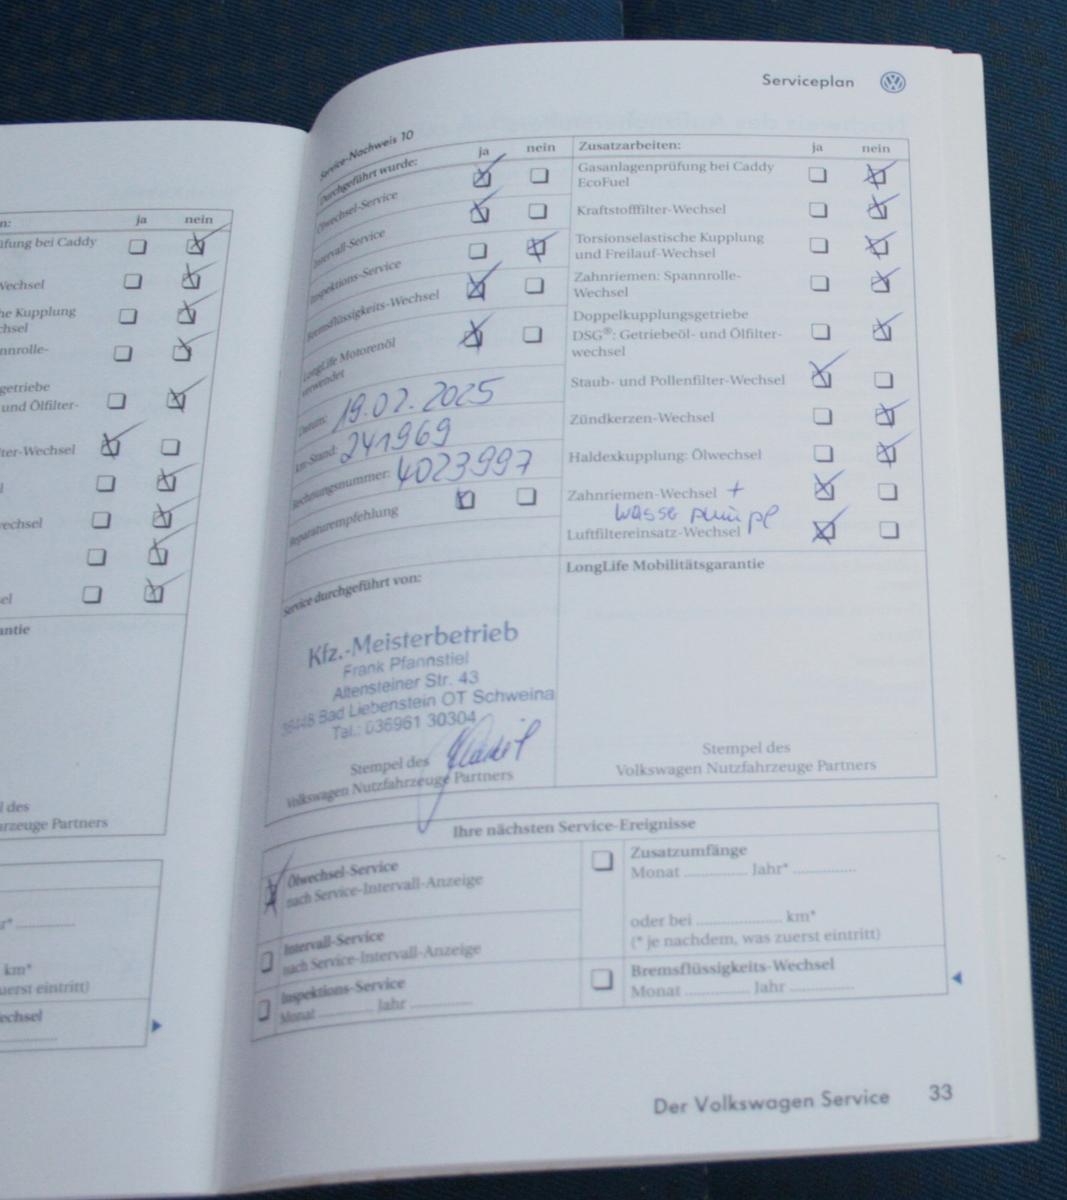 n:
ja nein
üfung bei Caddy
Wechsel
he Kupplung
chsel
nnrolle-
getriebe
und Ölfilter-
ter-Wechsel
l
wechsel
sel
antie
l des
arzeuge Partners
r* ................
km*
uerst eintritt)
echsel
................
Serviceplan
Service-Nachweis 10
Durchgeführt wurde: ja nein
Ölwechsel-Service
Intervall-Service
Inspektions-Service
Bremsflüssigkeits-Wechsel
LongLife Motorenöl
verwendet
Datum: 19.02.2025
km-Stand: 241969
Rechnungsnummer: 4023997
Reparaturempfehlung
Service durchgeführt von:
Kfz.-Meisterbetrieb
Frank Pfannstiel
Altensteiner Str. 43
36448 Bad Liebenstein OT Schweina
Tel.: 036961 30304
Stempel des
Volkswagen Nutzfahrzeuge Partners
Zusatzarbeiten: ja nein
Gasanlagenprüfung bei Caddy
EcoFuel
Kraftstofffilter-Wechsel
Torsionselastische Kupplung
und Freilauf-Wechsel
Zahnriemen: Spannrolle-
Wechsel
Doppelkupplungsgetriebe
DSG®: Getriebeöl- und Ölfilter-
wechsel
Staub- und Pollenfilter-Wechsel
Zündkerzen-Wechsel
Haldexkupplung: Ölwechsel
Zahnriemen-Wechsel +
Luftfiltereinsatz-Wechsel
LongLife Mobilitätsgarantie
Stempel des
Volkswagen Nutzfahrzeuge Partners
Ihre nächsten Service-Ereignisse
Ölwechsel-Service
nach Service-Intervall-Anzeige
Intervall-Service
nach Service-Intervall-Anzeige
Inspektions-Service
Monat ................ Jahr ................
Zusatzumfänge
Monat ................ Jahr* ................
oder bei ...................... km*
(* je nachdem, was zuerst eintritt)
Bremsflüssigkeits-Wechsel
Monat ................ Jahr ................
Der Volkswagen Service 33